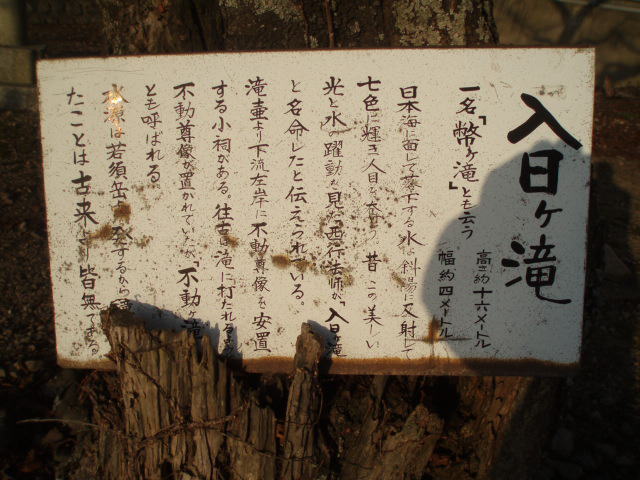 入日ヶ滝
高さ約十六メートル
幅約四メートル
一名「幣ヶ滝」とも云う
日本海に面して落下する水は斜陽に反射して
七色に輝き人目を う 昔 この美しい
光と水の躍動を見た西行法師が、「入日ヶ滝」
と名命したと伝えられている。
滝壷より下流左岸に不動尊像を安置
する小祠がある。往古は滝に打たれる
不動尊像が置かれていたが、「不動ヶ滝」
とも呼ばれる
水源は若須岳 発するから
たことは古来より皆無である